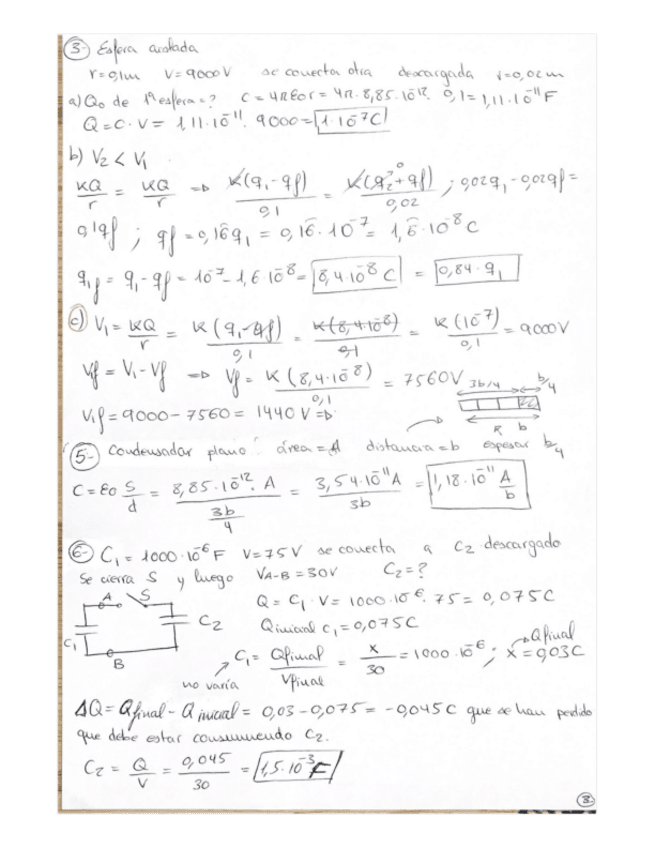 3- Esfera aislada
r=0,1m V=9000V se conecta otra descargada r=0,02m
a) Q₀ de 1ª esfera=? C=4πε₀r=4π·8,85·10⁻¹²·0,1=1,11·10⁻¹¹F
Q=C·V= 1,11·10⁻¹¹·9000=1·10⁻⁷C
b) V₂<V₁
KQ/r = KQ/r ⇒ K(q₁-qf)/0,1 = K(q₂⁰+qf)/0,02 ; 0,02q₁-0,02qf=
0,1qf ; qf=0,16q₁=0,16·10⁻⁷=1,6·10⁻⁸C
q₁f=q₁-qf=10⁻⁷-1,6·10⁻⁸=8,4·10⁻⁸C = 0,84·q₁
c) V₁=KQ/r = K(q₁-qf)/0,1 = K(8,4·10⁻⁸)/0,1 = K(10⁻⁷)/0,1 = 9000V
Vf=V₁-Vf ⇒ Vf= K(8,4·10⁻⁸)/0,1 = 7560V
3b/4 b/4
V₁f=9000-7560=1440V⇒
b
5- Condensador plano área=A distancia=b espesor b/4
C=ε₀ S/d = 8,85·10⁻¹²·A/(3b/4) = 3,54·10⁻¹¹A/3b = 1,18·10⁻¹¹ A/b
6- C₁=1000·10⁻⁶F V=75V se conecta a C₂ descargado
Se cierra S y luego V_A-B=30V C₂=?
A S
C₁ C₂
B
Q=C₁·V=1000·10⁻⁶·75=0,075C
Q inicial C₁=0,075C
Qfinal
C₁= Qfinal/Vfinal = x/30 =1000·10⁻⁶ ; x=0,03C
no varía
ΔQ=Qfinal-Qinicial=0,03-0,075=-0,045C que se han perdido
que debe estar consumiendo C₂.
C₂= Q/V = 0,045/30 = 1,5·10⁻³F
3